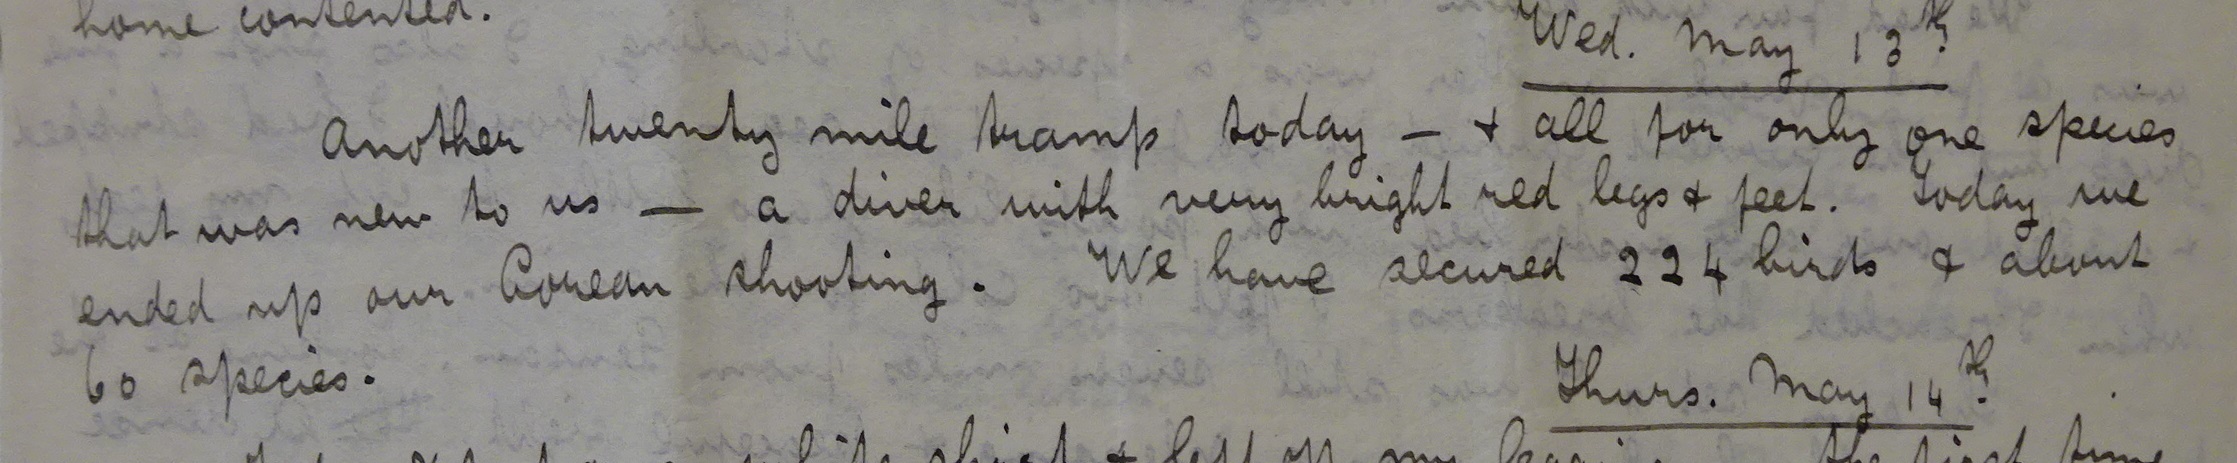 home contented.
Wed. May 13th.
Another twenty mile tramp today — & all for only one species
that was new to us — a diver with very bright red legs & feet. Today we
ended up our Corean shooting. We have secured 224 birds & about
60 species.
Thurs. May 14th.
white shirt & left off my the first time